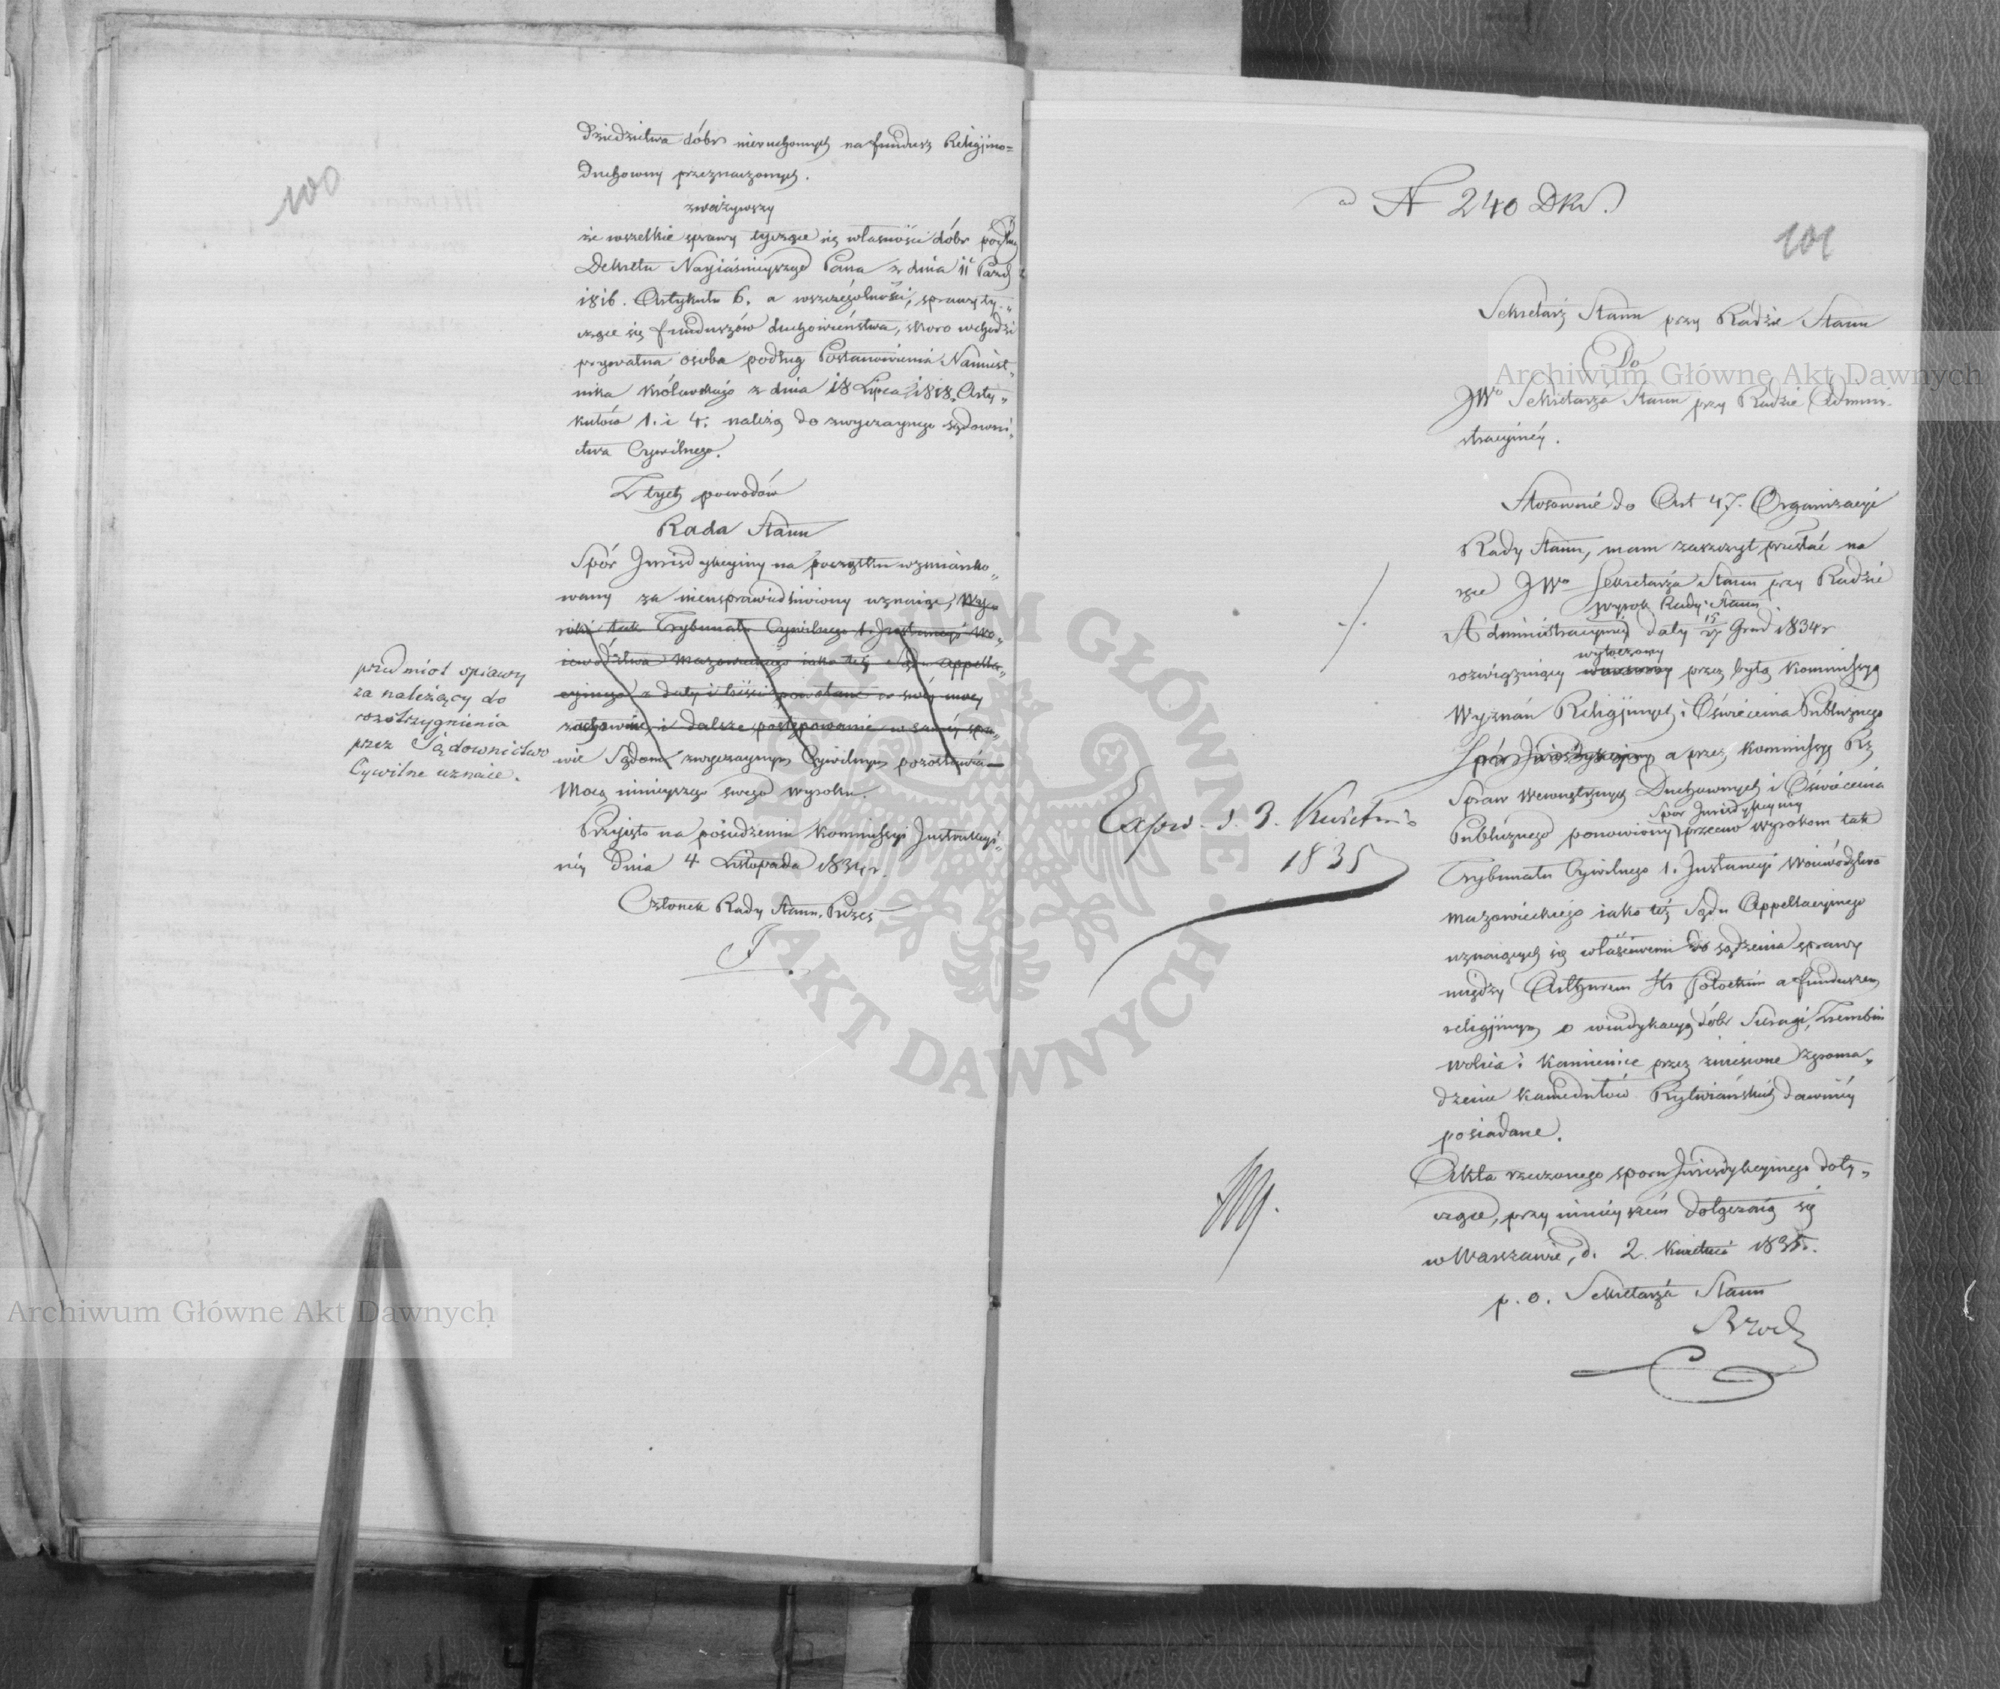 100
dziedzictwa dóbr nieruchomych na fundusz Religijno=
Duchowny przeznaczonych.
zważywszy
że wszelkie sprawy tyczące się własności dóbr podług
Dekretu Nayiaśnieyszego Pana z dnia 11 Paźd
1816. Artykułu 6. a wszczególności, sprawy ty„
czące się funduszów duchowieństwa, skoro wchodzi
prywatna osoba podług Postanowienia Namiest„
nika Królewskiego z dnia 18 Lipca 1818. Arty„
kułów 1. i 4. należą do zwyczaynego sądowni„
ctwa Cywilnego.
Z tych powodów
Rada Stanu
Spór Jurisdykcyiny na początku wzmianko„
wany za nieusprawiedliwiony uznaie, Wyro
roki tak Trybunału Cywilnego 1. Instancyi Wo„
iewództwa Mazowieckiego iako też Sądu Appella„
cyinego z daty i treści powołane w swéy mocy
zachowuie i dalsze postępowanie w saméy spra„
wie Sądom zwyczaynym Cywilnym pozostawia
Mocą ninieyszego swego wyroku.
przedmiot sprawy
za należący do
rozstrzygnienia
przez Sądownictwo
Cywilne uznaie.
Przyięto na posiedzeniu Kommissyi Instrukcyi„
néy dnia 4 Listopada 1834 r.
Członek Rady Stanu, Prezes
ad N 240 DKr.
101
Sekretarz Stanu przy Radzie Stanu
Do
JWo Sekretarza Stanu przy Radzie Admini„
stracyinéy.
Stosownie do Art 47. Organizacyi
Rady Stanu, mam zaszczyt przesłać na
ręce JWo Sekretarza Stanu przy Radzie
wyrok Rady Stanu
Administracyinéy daty 15/27 Grud 1834 r
wytoczony
rozwiązuiący przez byłą Kommissyą
Wyznań Religijnych i Oświecenia Publicznego
Spór Jurisdykcyiny a przez Kommissyą Rz
Spraw Wewnętrznych Duchownych i Oświecenia
Spór Jurisdykcyiny
Publicznego ponowiony przeciw wyrokom tak
Trybunału Cywilnego 1. Instancyi Woiewództwa
Mazowieckiego iako też Sądu Appellacyinego
uznaiących się właściwemi do sądzenia sprawy
między Arthurem Hr Potockim a funduszem
religijnym o windykacyą dóbr Sieragi, Trembin
wolica i Kamienice przez zniesione zgroma„
dzenie Kamedułów Rytwiańskich dawniéy
posiadane.
Akta rzeczonego sporu Jurisdykcyinego doty„
czące, przy ninieyszém dołączaią się
w Warszawie, d. 2. Kwietnia 1835.
p. o. Sekretarza Stanu
Exped. d. 3. Kwietnia
1835
Archiwum Główne Akt Dawnych
Archiwum Główne Akt Dawnych
ARCHIWUM GŁÓWNE · AKT DAWNYCH ·